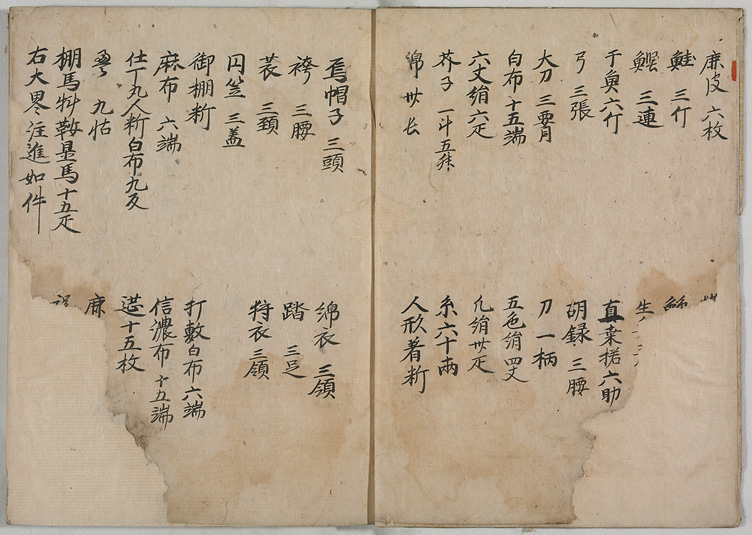 鹿皮 六枚
鮭 三仃
三連
干魚 六仃
弓 三張
大刀 三腰
白布 十五端
六丈絹 六疋
芥子 一斗五舛
綿 丗
生
直垂 六
胡録 三腰
刀 一柄
五色絹 四丈
凡絹 丗疋
糸 六十両
人形着料
烏帽子 三頭
袴 三腰
蓑 三頚
円笠 三蓋
御棚料
麻布 六端
仕丁九人料白布九反
九
棚馬料鞍置馬十五疋
右大略注進如件
綿衣 三領
踏 三足
狩衣 三領
打敷白布六端
信濃布 十五端
十五枚
麻